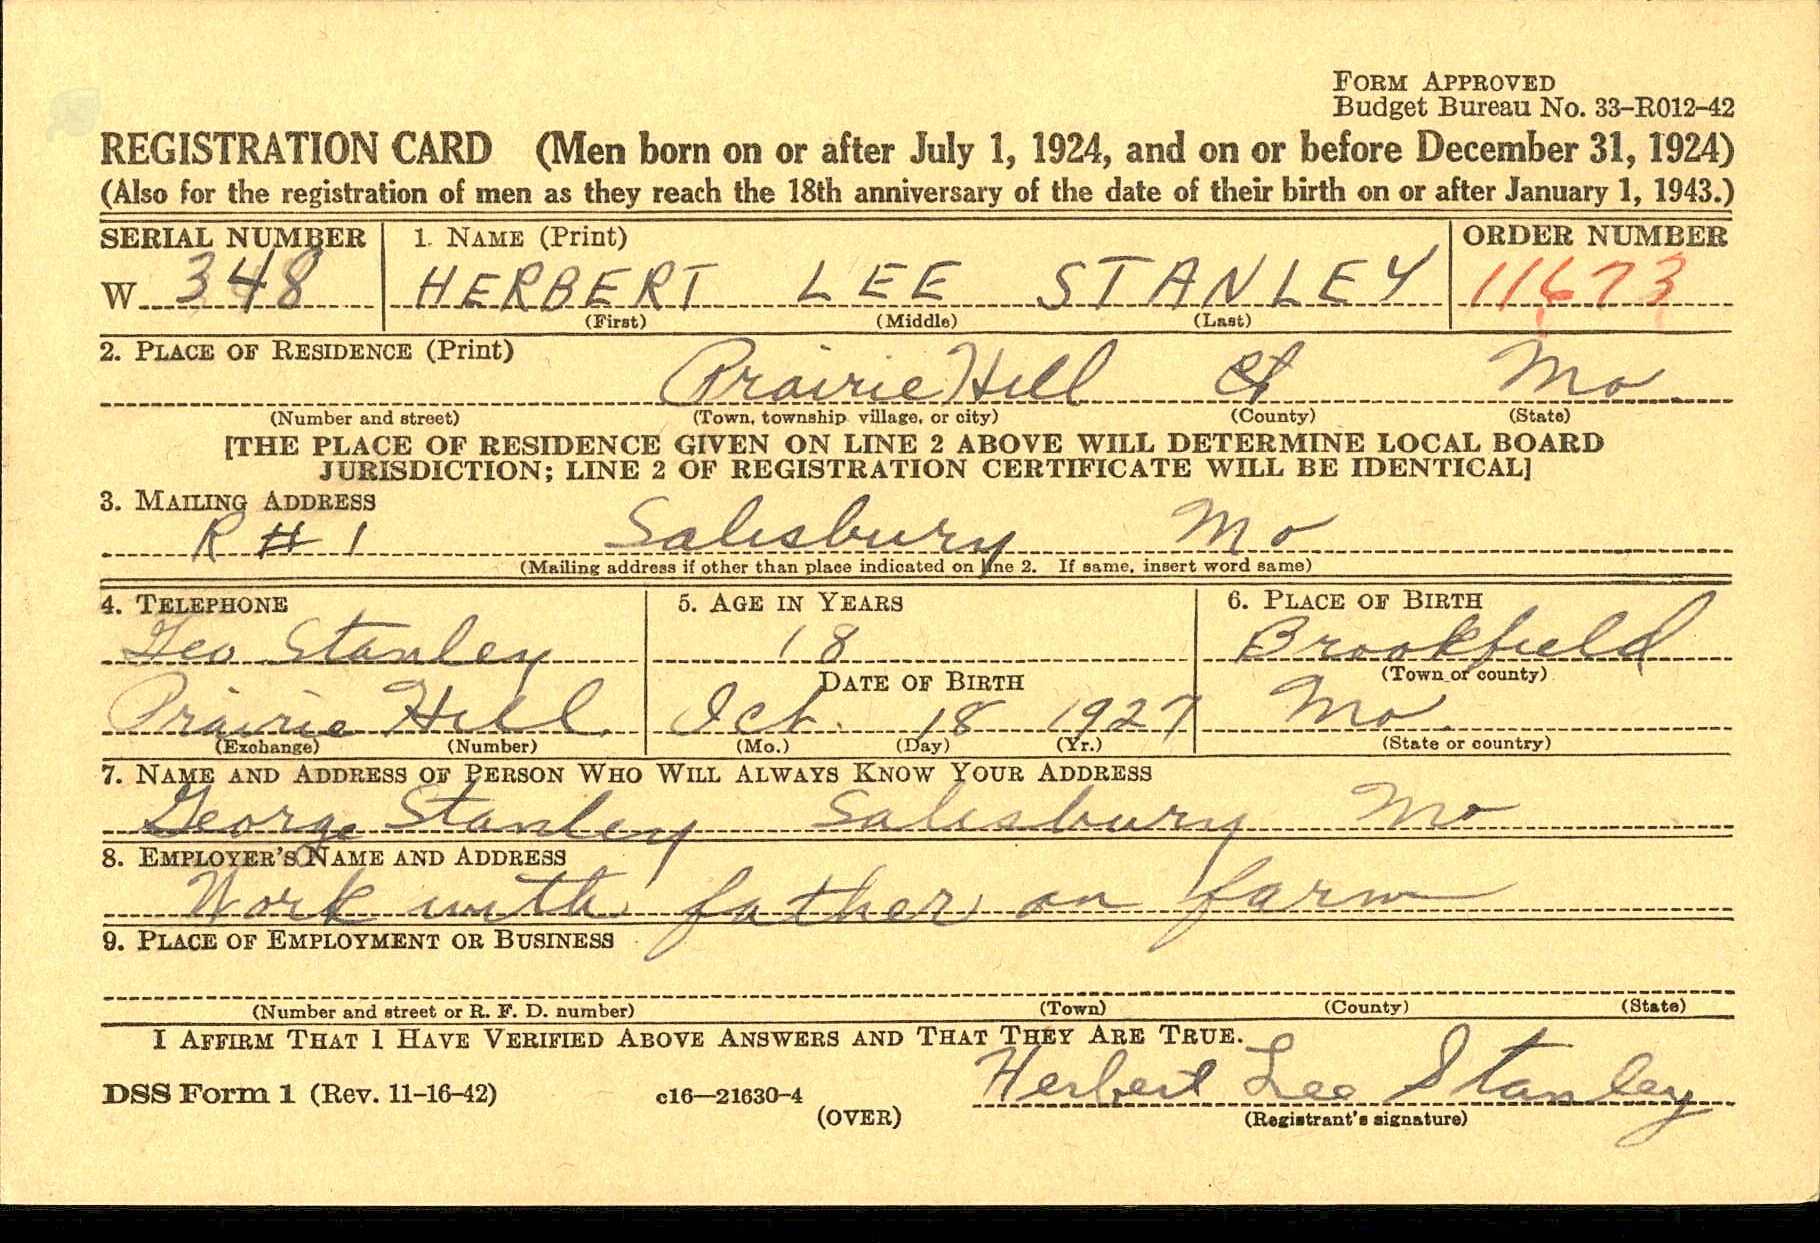 FORM APPROVED
Budget Bureau No. 33–R012–42
REGISTRATION CARD (Men born on or after July 1, 1924, and on or before December 31, 1924)
(Also for the registration of men as they reach the 18th anniversary of the date of their birth on or after January 1, 1943.)
SERIAL NUMBER 1. NAME (Print) ORDER NUMBER
W 348 HERBERT LEE STANLEY 11673
(First) (Middle) (Last)
2. PLACE OF RESIDENCE (Print)
Prairie Hill Mo
(Number and street) (Town, township, village, or city) (County) (State)
[THE PLACE OF RESIDENCE GIVEN ON LINE 2 ABOVE WILL DETERMINE LOCAL BOARD
JURISDICTION; LINE 2 OF REGISTRATION CERTIFICATE WILL BE IDENTICAL]
3. MAILING ADDRESS
R # 1 Salisbury Mo
(Mailing address if other than place indicated on line 2. If same, insert word same)
4. TELEPHONE 5. AGE IN YEARS 6. PLACE OF BIRTH
Geo Stanley 18 Brookfield
DATE OF BIRTH (Town or county)
Prairie Hill Oct. 18 1927 Mo.
(Exchange) (Number) (Mo.) (Day) (Yr.) (State or country)
7. NAME AND ADDRESS OF PERSON WHO WILL ALWAYS KNOW YOUR ADDRESS
George Stanley Salisbury Mo
8. EMPLOYER'S NAME AND ADDRESS
Work with father on farm
9. PLACE OF EMPLOYMENT OR BUSINESS
(Number and street or R. F. D. number) (Town) (County) (State)
I AFFIRM THAT I HAVE VERIFIED ABOVE ANSWERS AND THAT THEY ARE TRUE.
Herbert Lee Stanley
DSS Form 1 (Rev. 11–16–42) c16—21630–4
(OVER) (Registrant's signature)